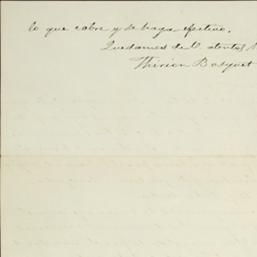 lo que cobre y se haga efectivo.
Quedamos de V. atentos
Thirion Bosquet